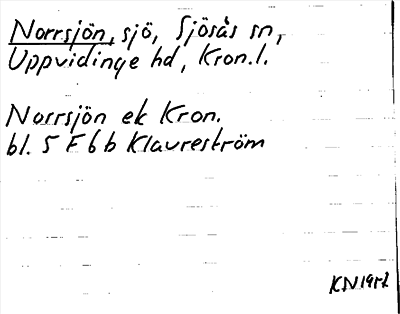 Norrsjön, sjö, Sjösås sn,
Uppvidinge hd, Kron.l.
Norrsjön ek Kron.
bl. 5 F 6 b Klavreström